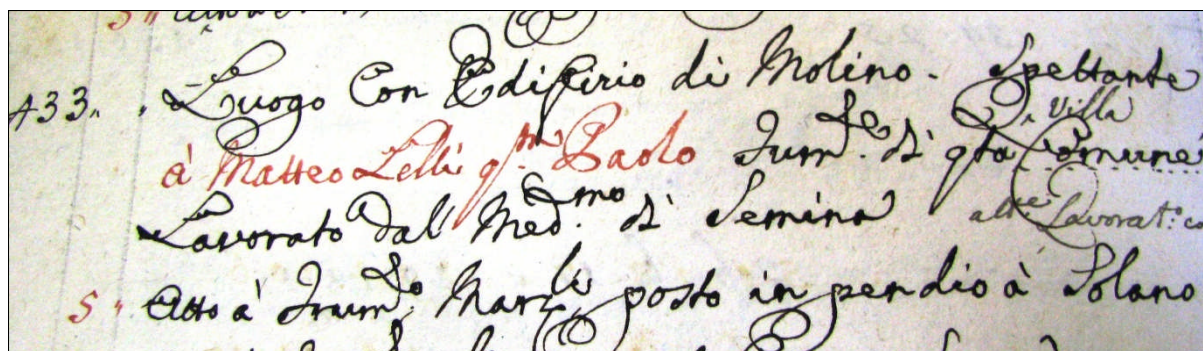 433. Luogo Con Edifizio di Molino. Spettante
Villa
à Matteo Lelli qm. Paolo di qta Comune
Lavorato dal Med.mo di Semina alte. Lavorat.
5 Atto à posto in pendio à Solano